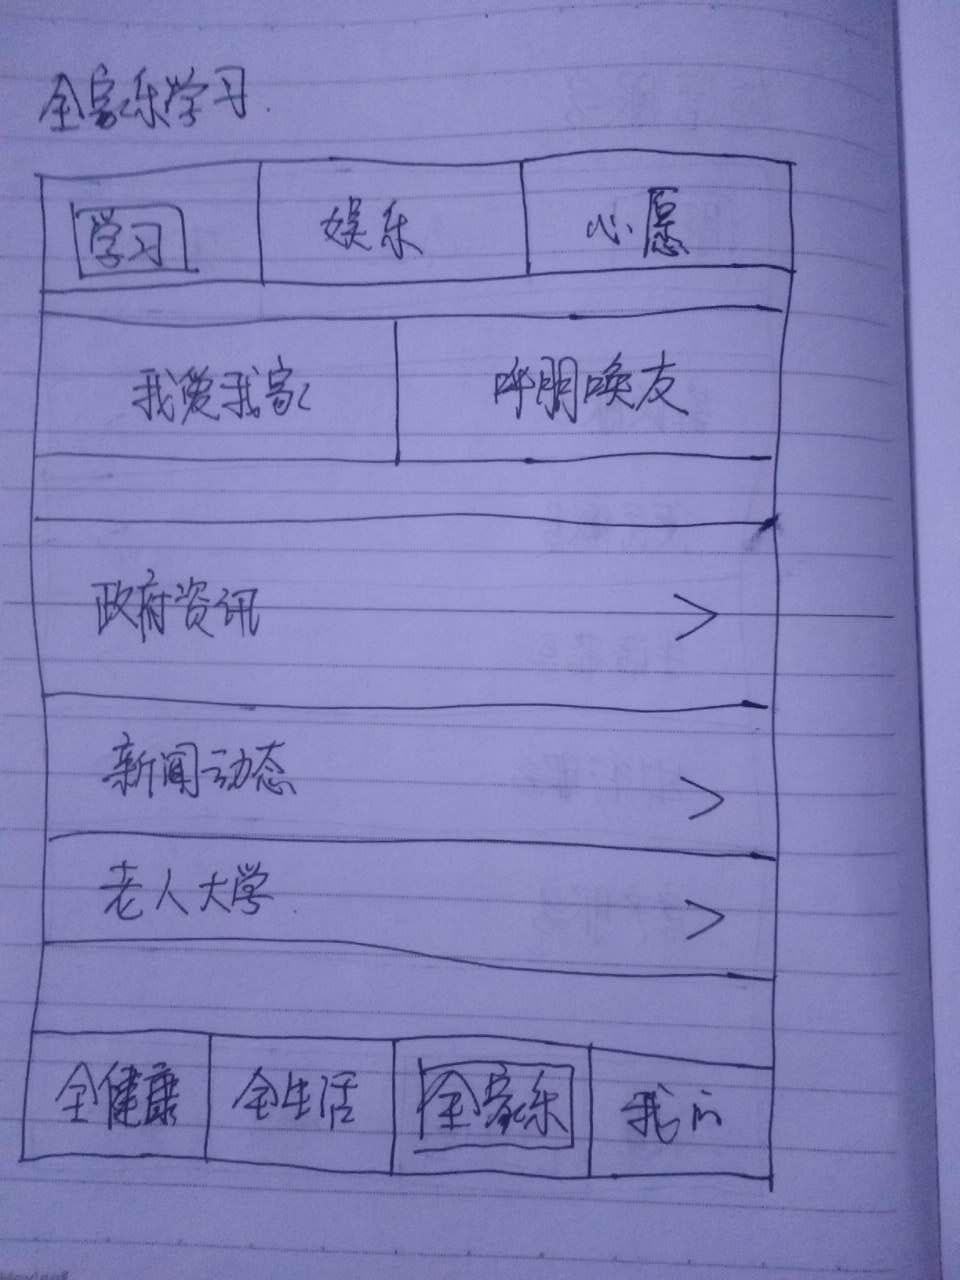 全家乐学习
学习 娱乐 心愿
我爱我家 呼朋唤友
政府资讯 >
新闻动态 >
老人大学 >
全健康 全生活 全家乐 我的